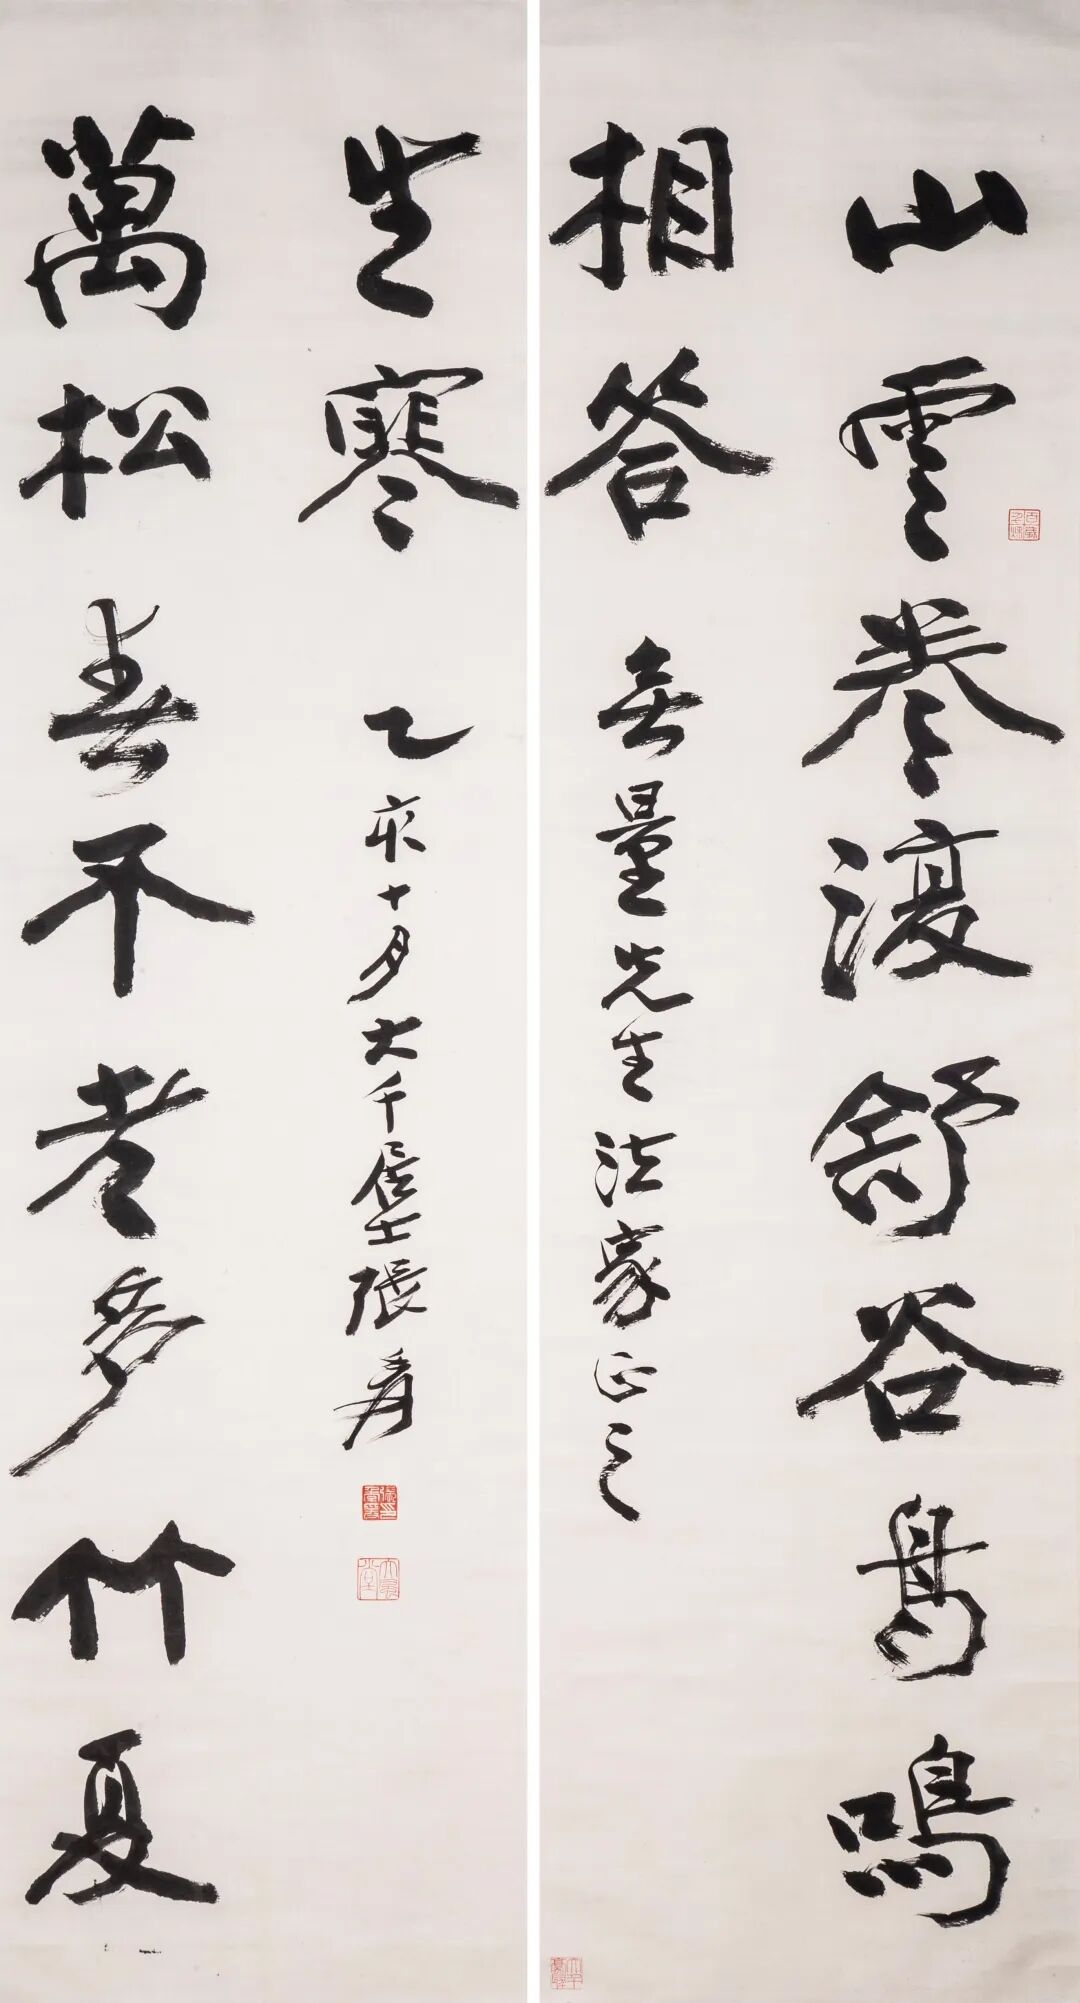 山雲卷復舒谷鳥鳴
相答
無量先生法家正之
萬松春不老多竹夏
生寒
乙亥十月大千居士張爰